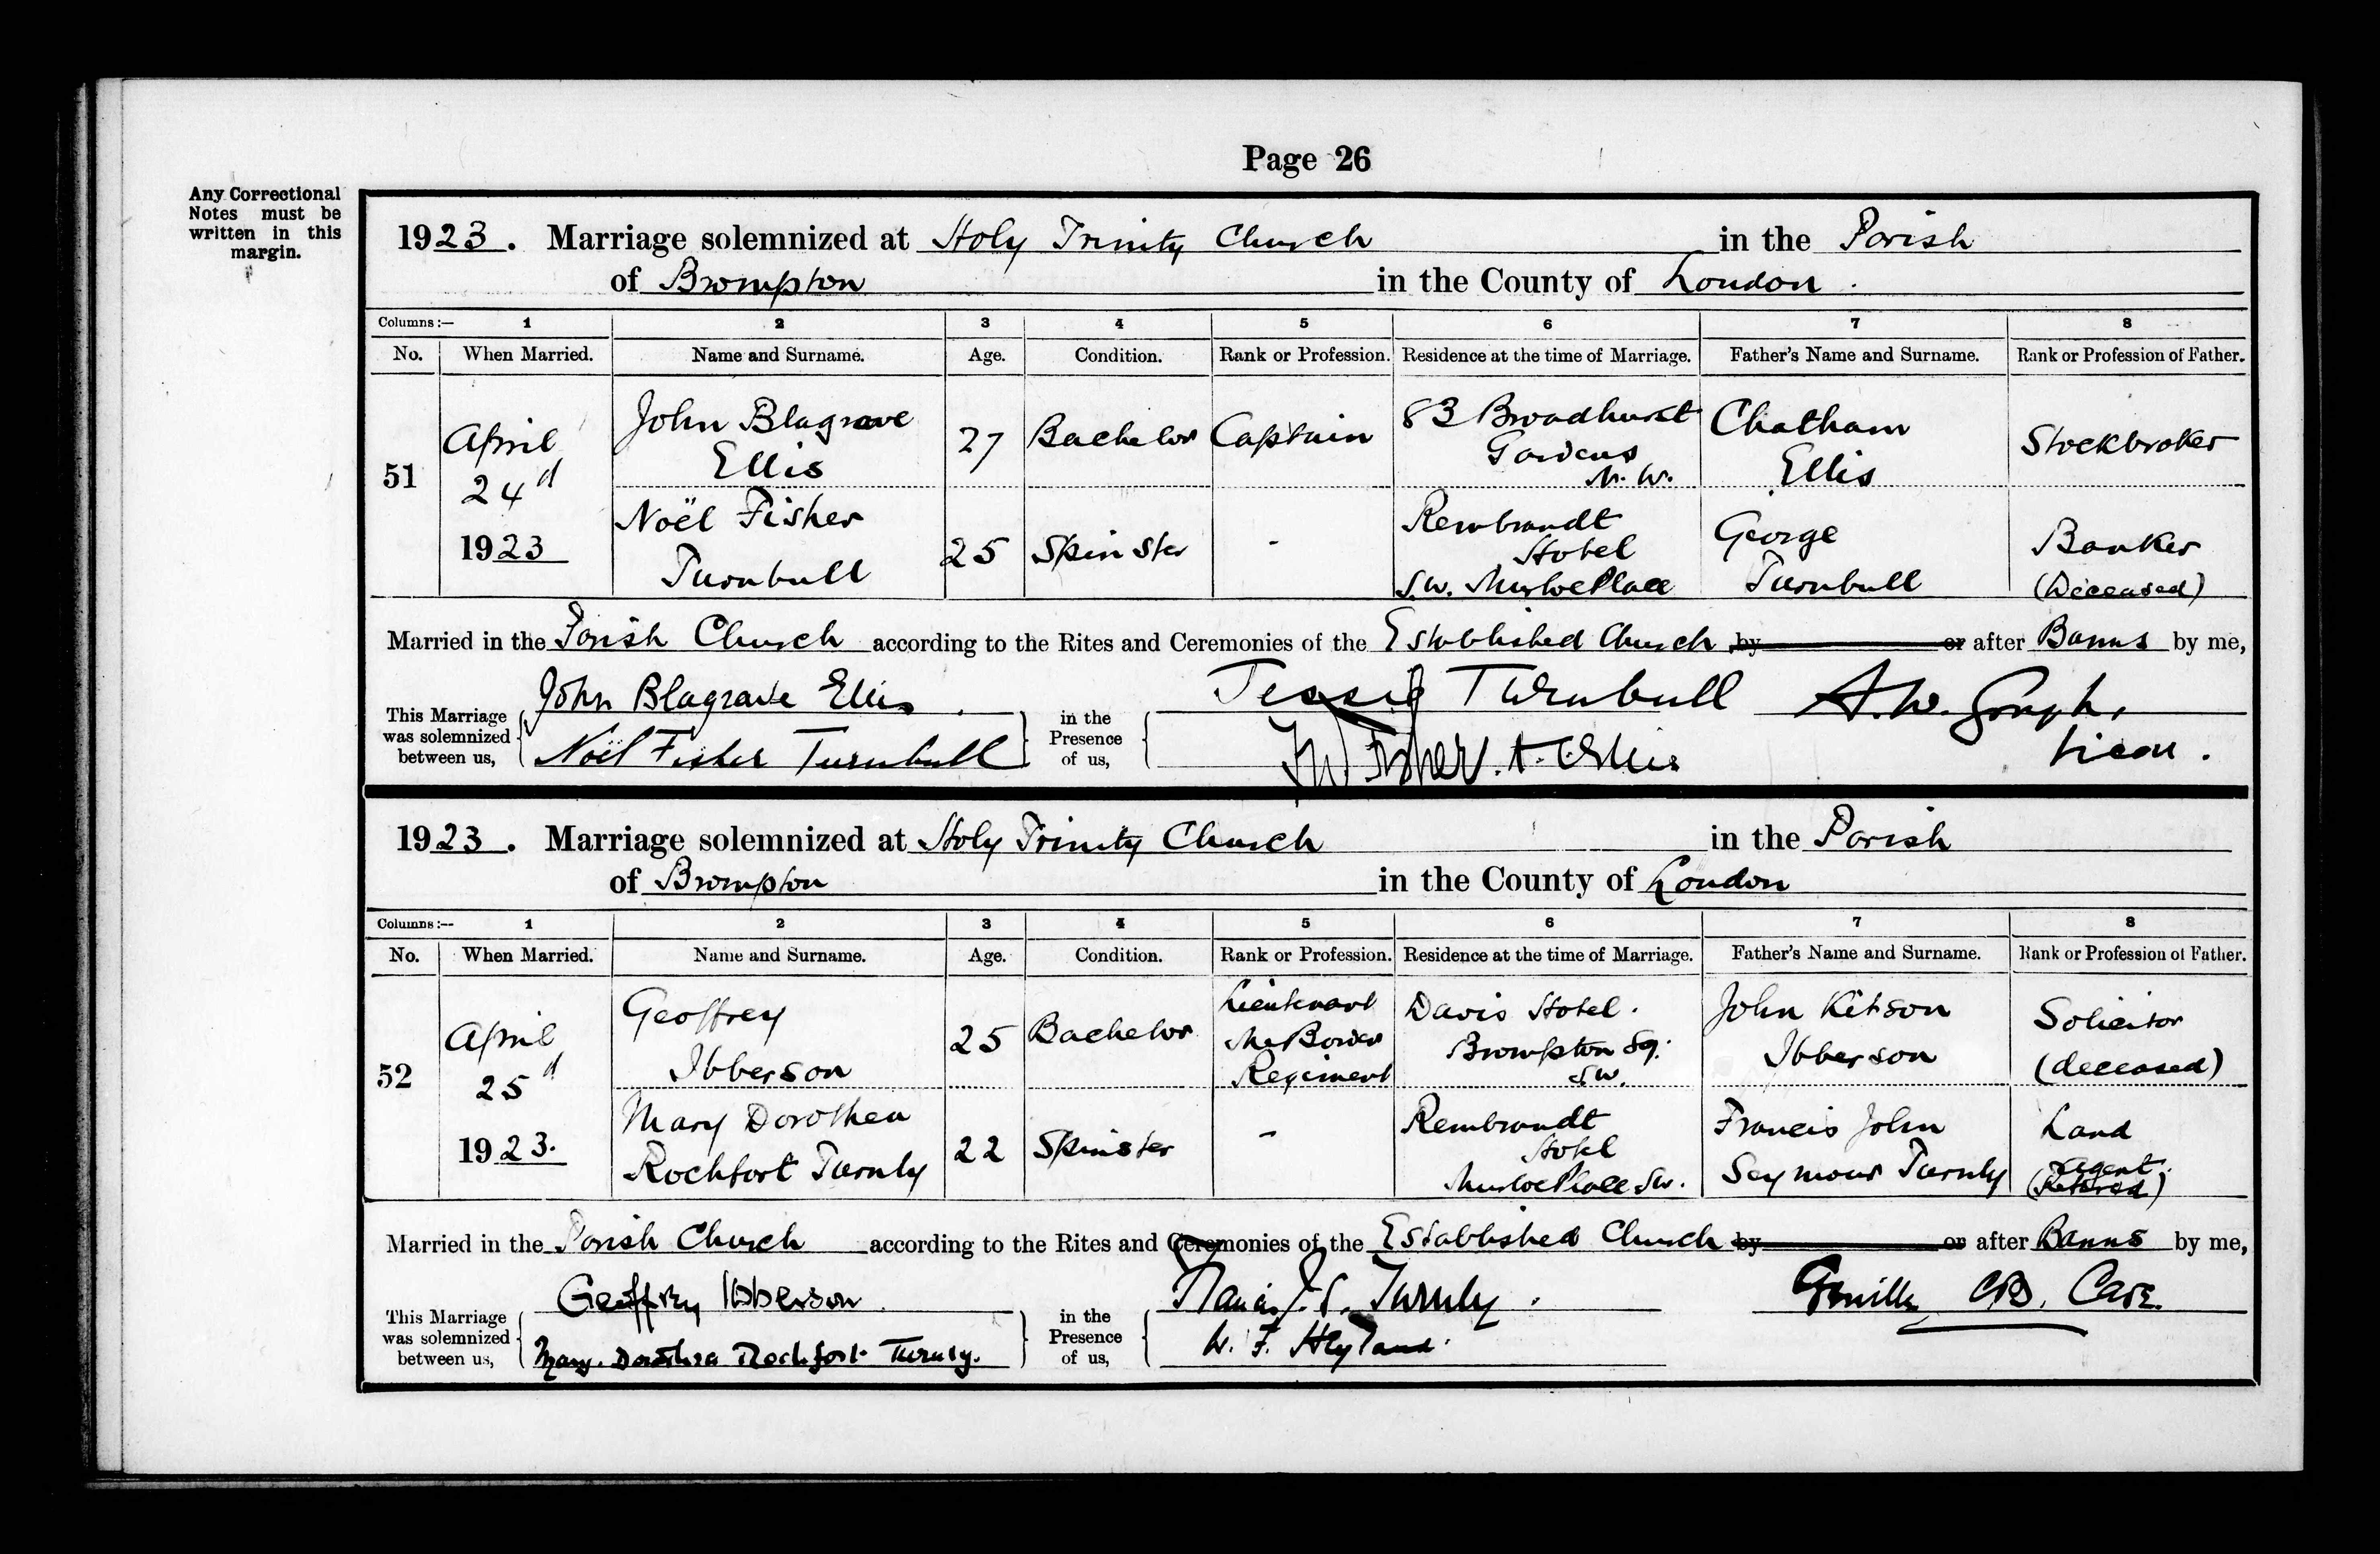 Page 26
Any Correctional
Notes must be
written in this
margin.
1923. Marriage solemnized at Holy Trinity Church in the Parish
of Brompton in the County of London.
Columns:— 1 2 3 4 5 6 7 8
No. When Married. Name and Surname. Age. Condition. Rank or Profession. Residence at the time of Marriage. Father's Name and Surname. Rank or Profession of Father.
51
April
24d
1923
John Blagrave
Ellis
27
Bachelor
Captain
83 Broadhurst
Gardens
N.W.
Chatham
Ellis
Stockbroker
Noël Fisher
Turnbull
25
Spinster
-
Rembrandt
Hotel
S.W. Thurloe Place
George
Turnbull
Banker
(Deceased)
Married in the Parish Church according to the Rites and Ceremonies of the Established Church by or after Banns by me,
This Marriage
was solemnized
between us,
John Blagrave Ellis
Noël Fisher Turnbull
in the
Presence
of us,
Jessie Turnbull
Fisher. Ellis
A. W. Gough,
Vicar.
1923. Marriage solemnized at Holy Trinity Church in the Parish
of Brompton in the County of London
Columns:— 1 2 3 4 5 6 7 8
No. When Married. Name and Surname. Age. Condition. Rank or Profession. Residence at the time of Marriage. Father's Name and Surname. Rank or Profession of Father.
52
April
25d
1923.
Geoffrey
Ibberson
25
Bachelor
Lieutenant
The Border
Regiment
Davis Hotel.
Brompton Sq.
S.W.
John Kitson
Ibberson
Solicitor
(deceased)
Mary Dorothea
Rochfort Turnly
22
Spinster
-
Rembrandt
Hotel
Thurloe Place S.W.
Francis John
Seymour Turnly
Land
Agent.
(Retired)
Married in the Parish Church according to the Rites and Ceremonies of the Established Church by or after Banns by me,
This Marriage
was solemnized
between us,
Geoffrey Ibberson
Mary. Dorothea Rochfort Turnly.
in the
Presence
of us,
Francis J. S. Turnly.
W. F. Heyland.